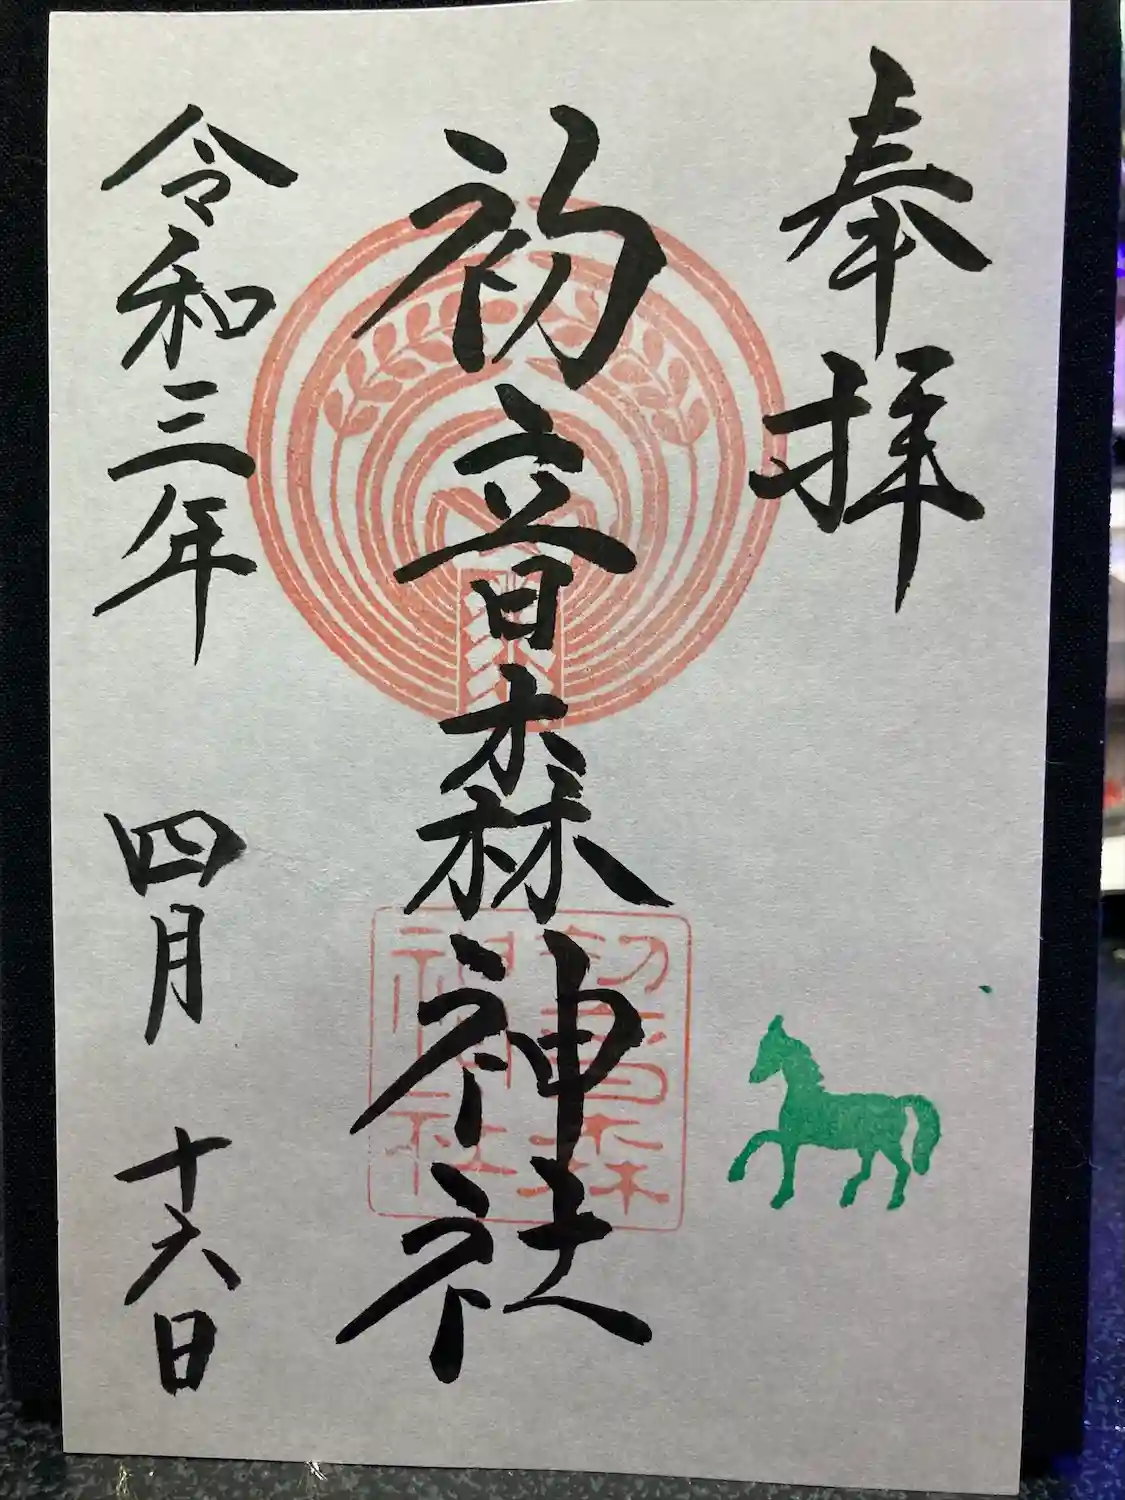 奉拝
初音森神社
初音森
神社
令和三年 四月 十六日